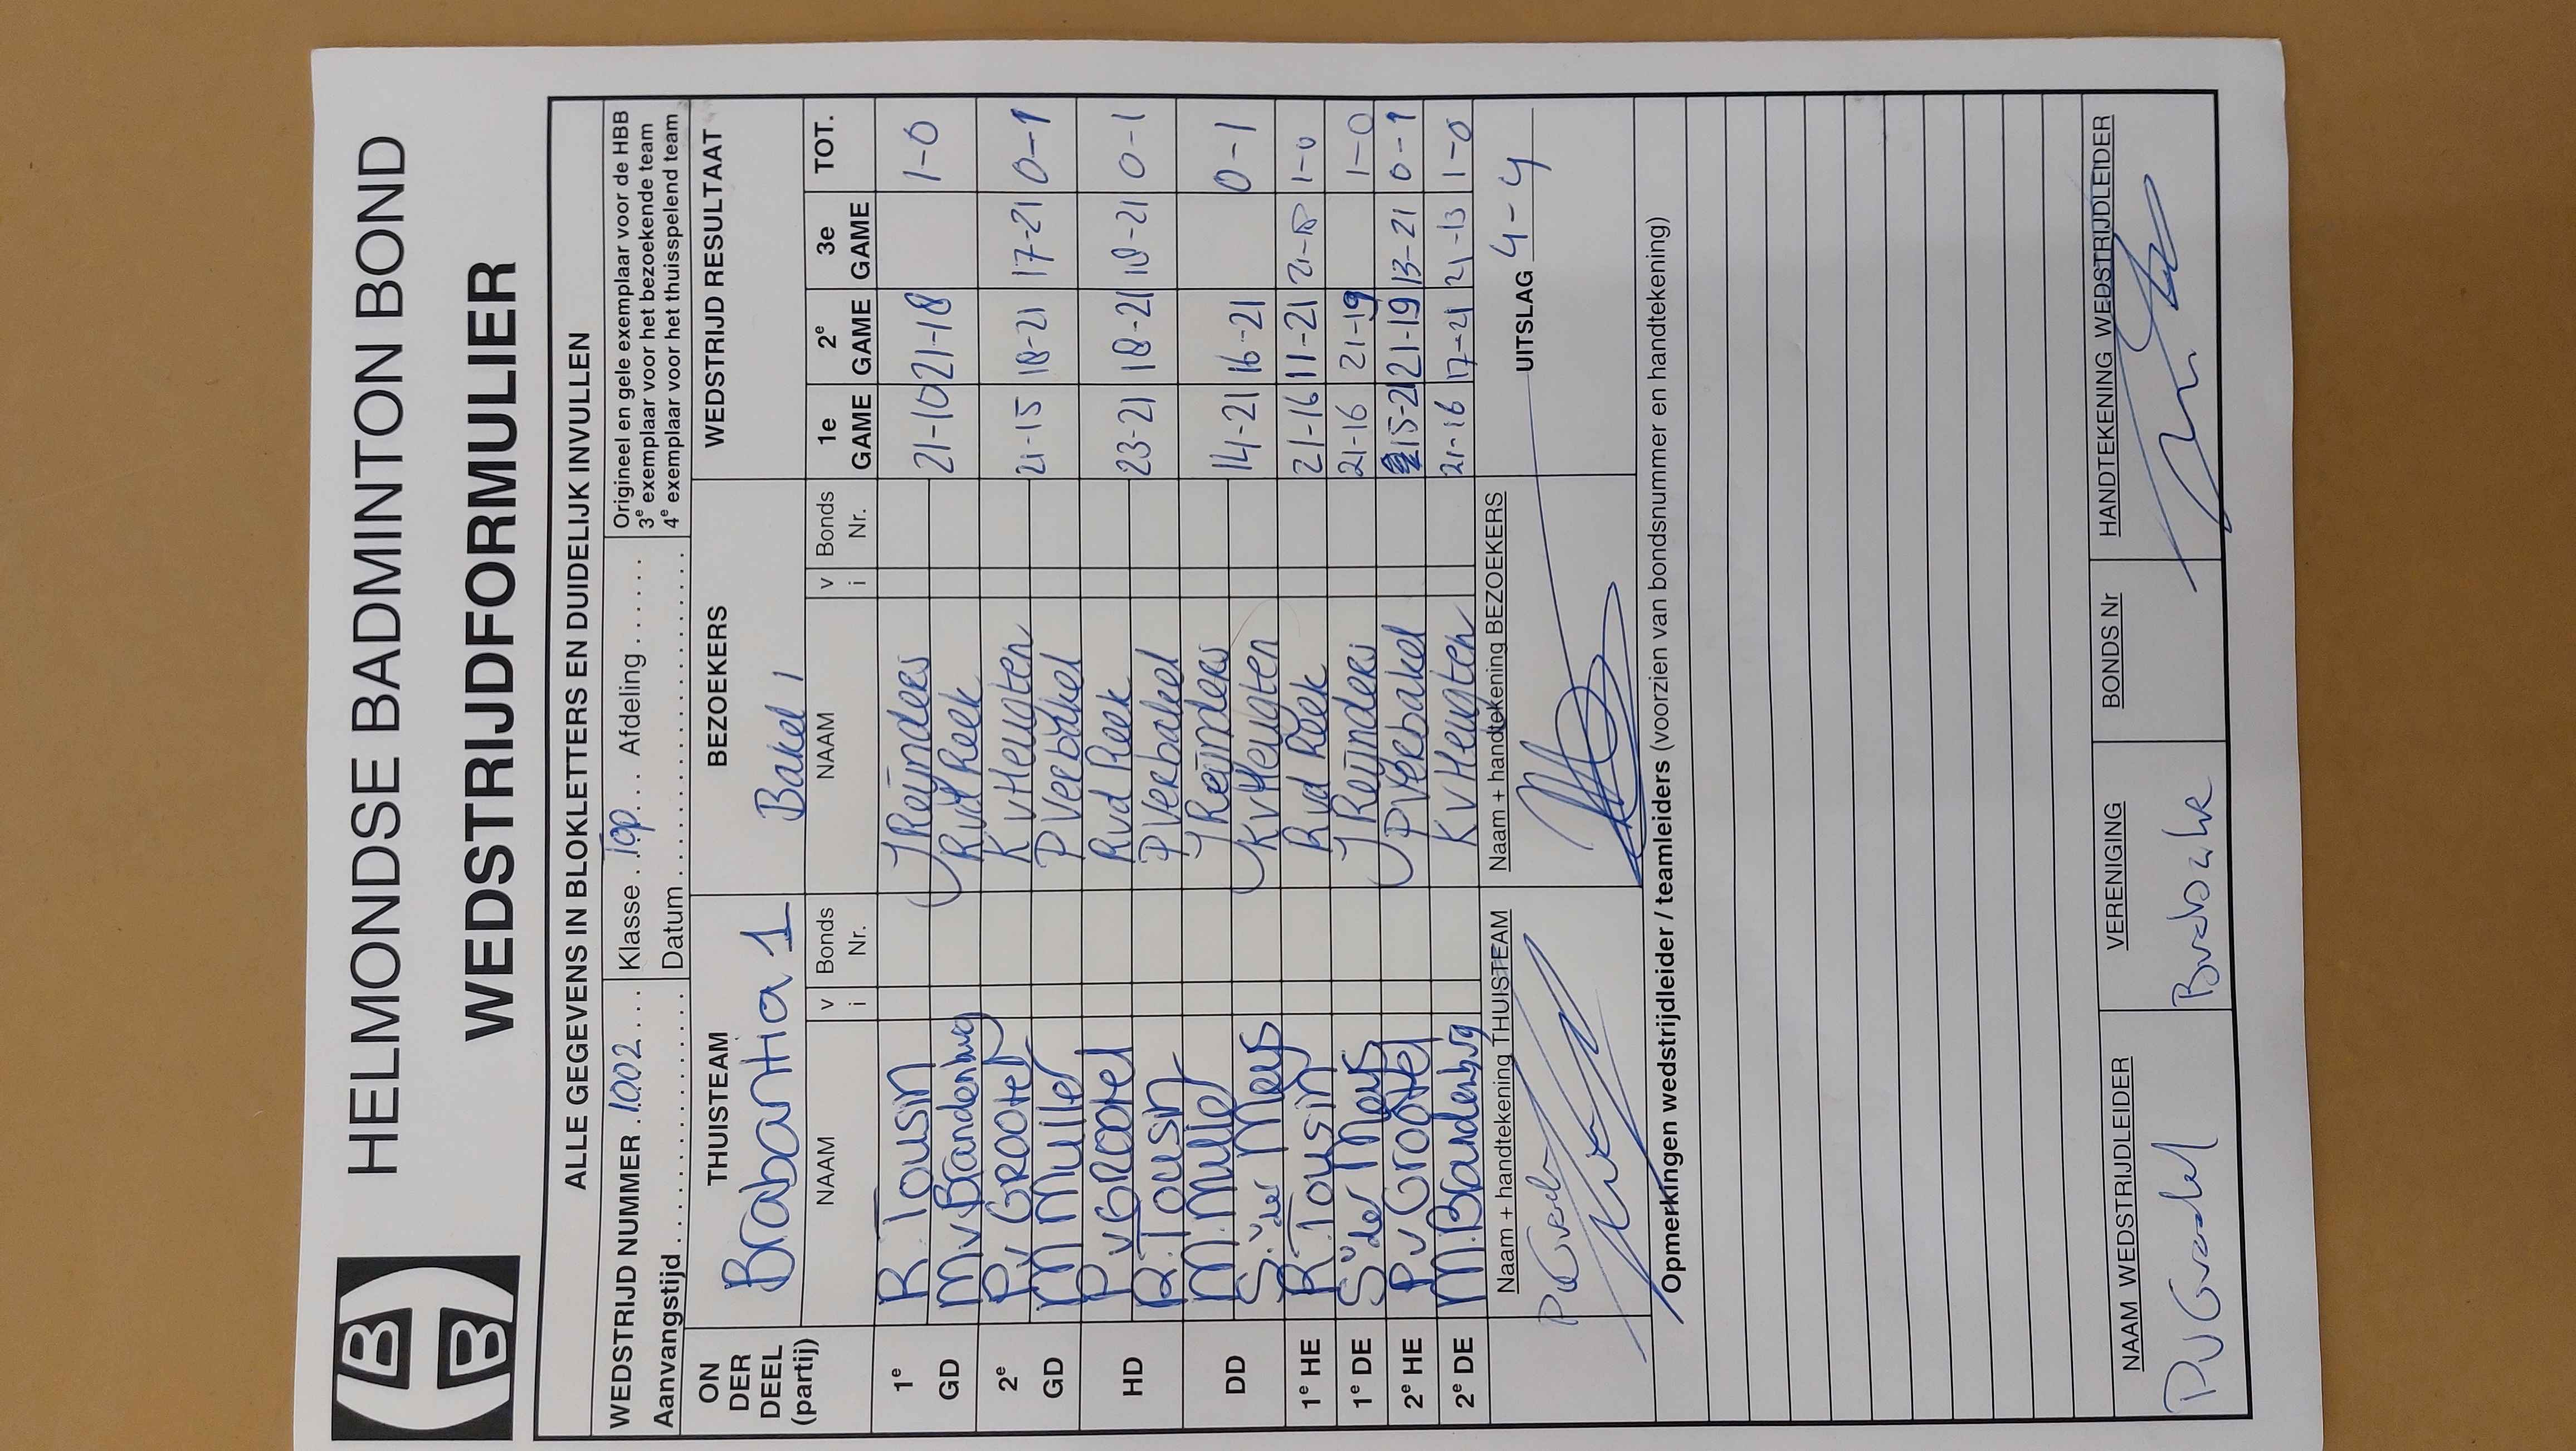 HBB
HELMONDSE BADMINTON BOND
WEDSTRIJDFORMULIER
ALLE GEGEVENS IN BLOKLETTERS EN DUIDELIJK INVULLEN
WEDSTRIJD NUMMER .1002... Klasse . Top... Afdeling ...... Origineel en gele exemplaar voor de HBB
3e exemplaar voor het bezoekende team
Aanvangstijd .................... Datum .............................. 4e exemplaar voor het thuisspelend team
ON DER DEEL (partij) THUISTEAM BEZOEKERS WEDSTRIJD RESULTAAT
Brabantia 1 Bakel 1
NAAM v i Bonds Nr. NAAM v i Bonds Nr. 1e GAME 2e GAME 3e GAME TOT.
1e R. Tousin J Reijnders
GD M v Brandenburg R vd Reek 21-10 21-18 1-0
2e P. v Grootel K v Heugten
GD M Muller P Verbakel 21-15 18-21 17-21 0-1
HD P v Grootel R vd Reek
R. Tousin P Verbakel 23-21 18-21 18-21 0-1
DD M. Muller J Reijnders
S. v der Meijs K v Heugten 14-21 16-21 0-1
1e HE R. Tousin R vd Reek 21-16 11-21 21-18 1-0
1e DE S v der Meijs J Reijnders 21-16 21-19 1-0
2e HE P v Grootel P Verbakel 15-21 21-19 13-21 0-1
2e DE M. Brandenburg K v Heugten 21-16 17-21 21-13 1-0
Naam + handtekening THUISTEAM Naam + handtekening BEZOEKERS UITSLAG 4-4
Opmerkingen wedstrijdleider / teamleiders (voorzien van bondsnummer en handtekening)
NAAM WEDSTRIJDLEIDER VERENIGING BONDS Nr HANDTEKENING WEDSTRIJDLEIDER
P v Grootel